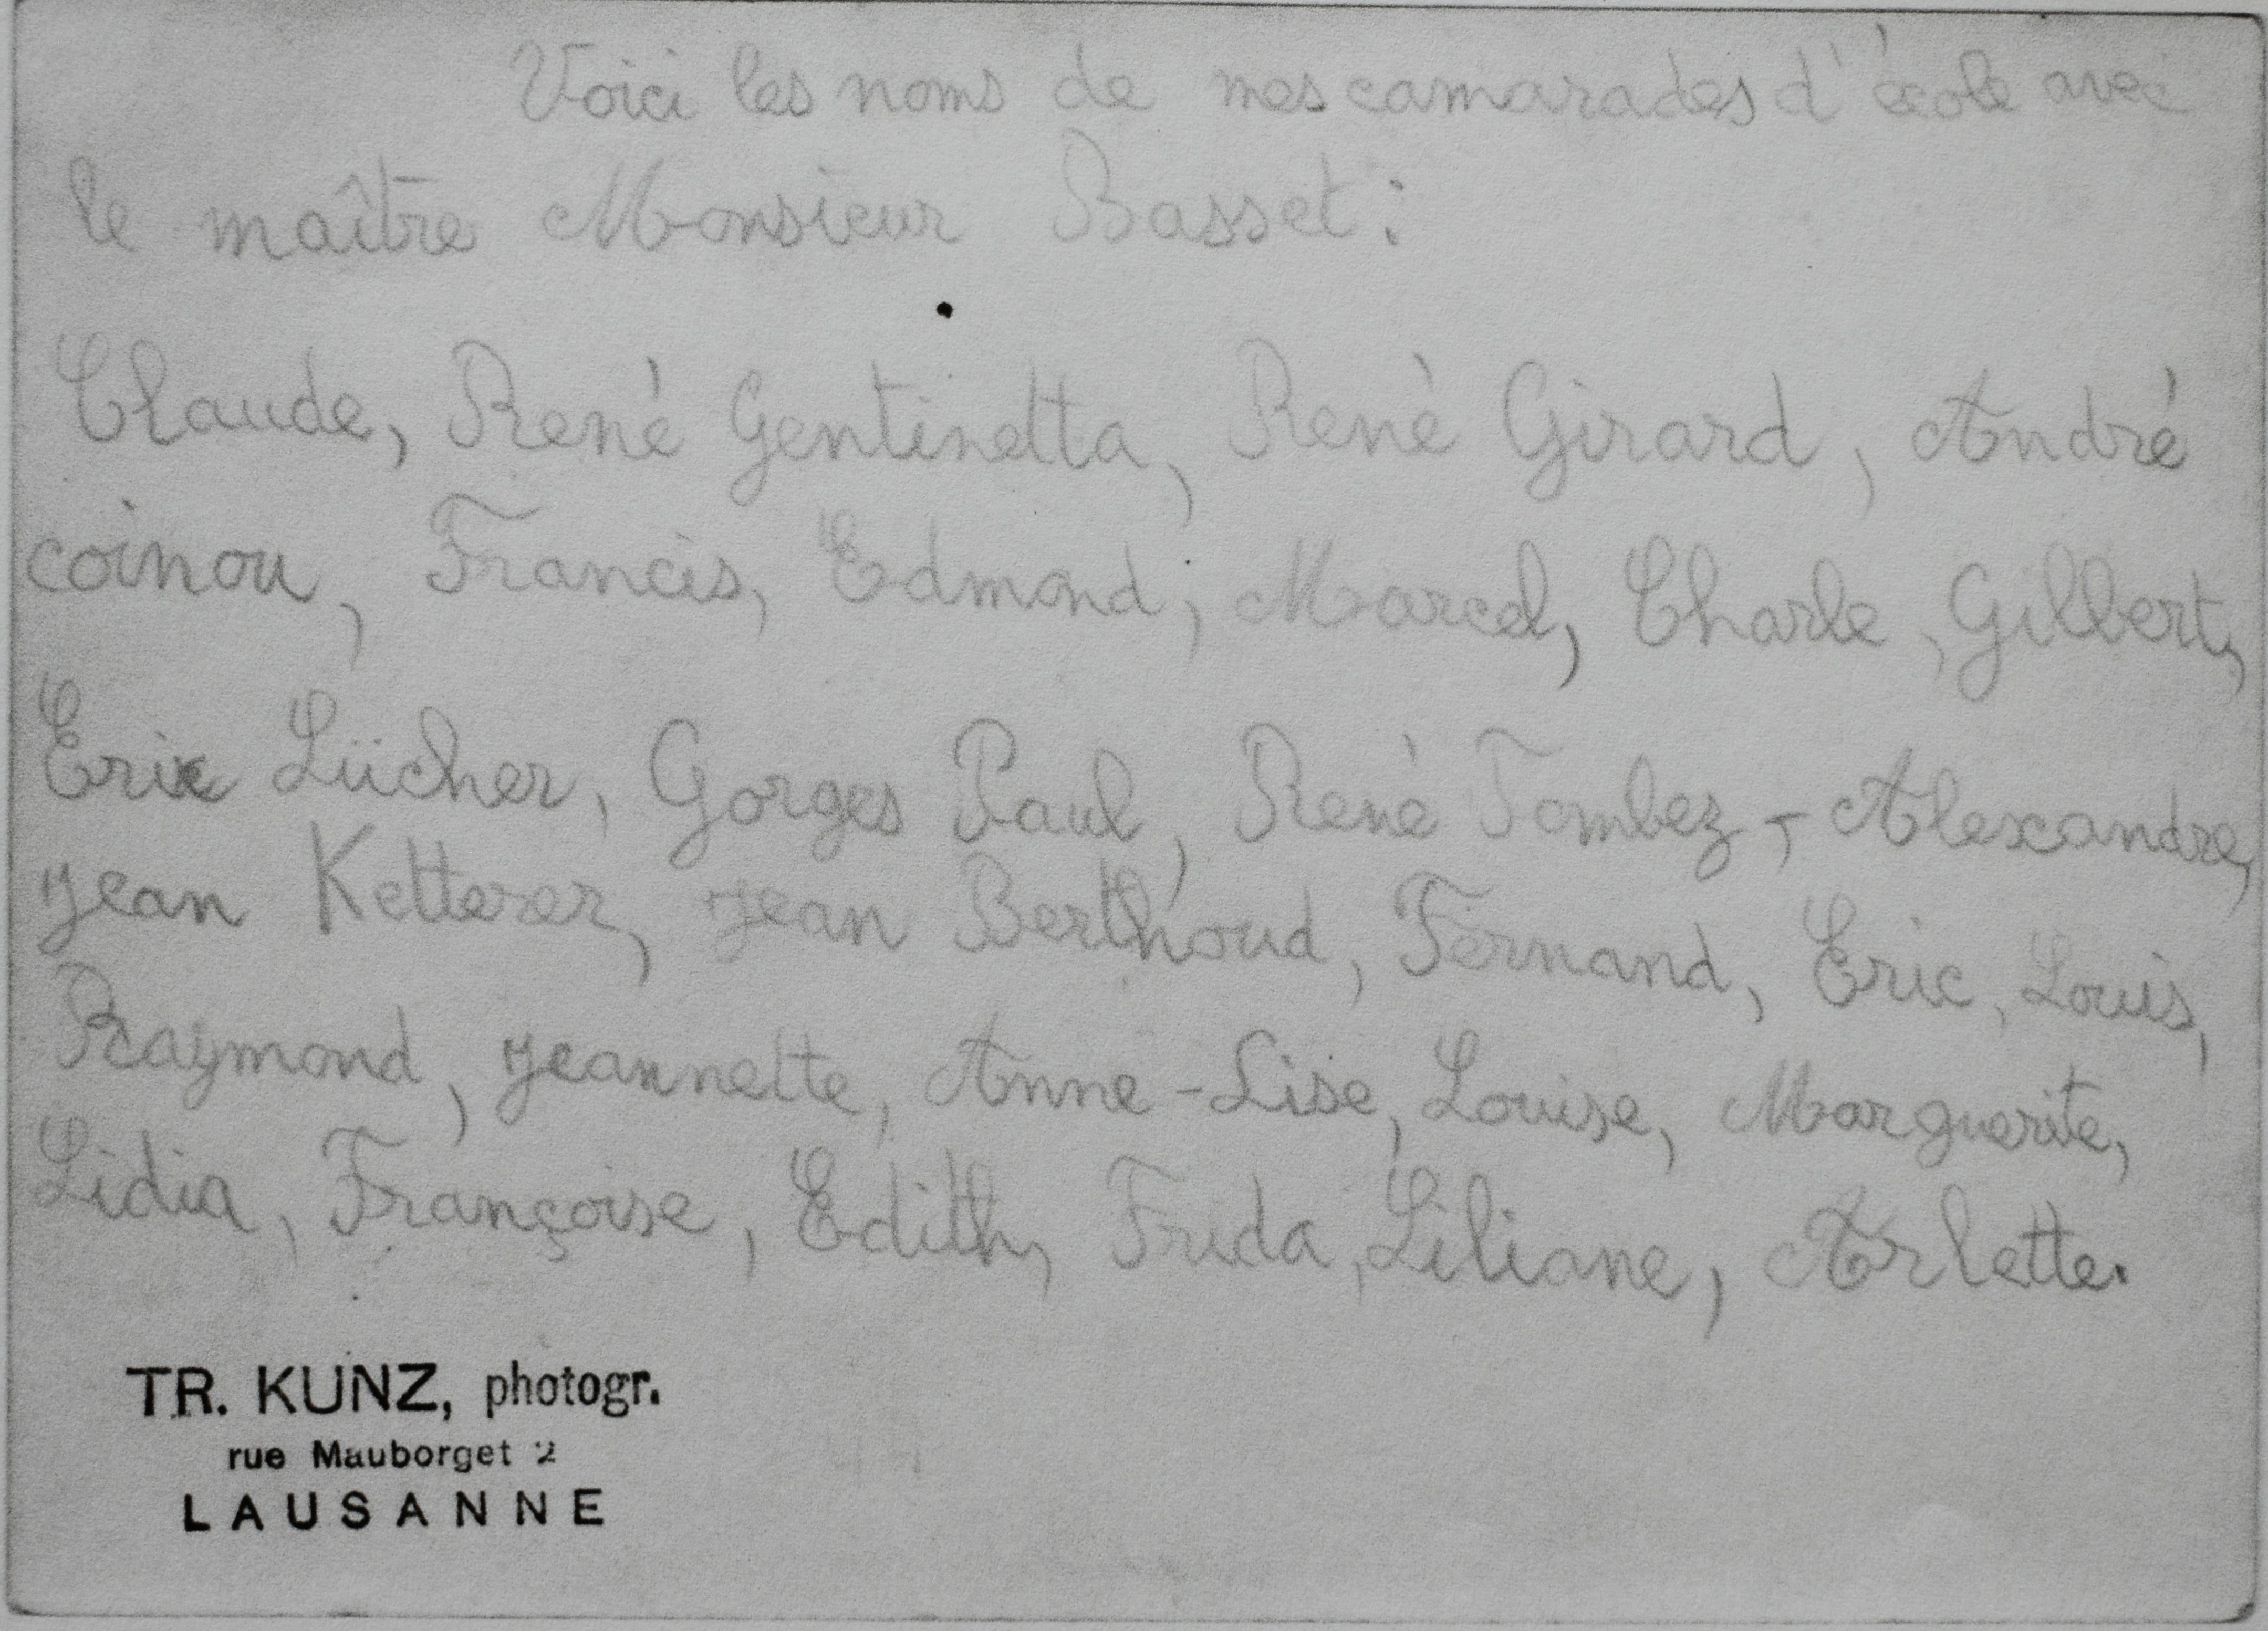 Voici les noms de mes camarades d'école avec
le maître Monsieur Basset :
Claude, René Gentinetta, René Girard, André
coinou, Francis, Edmond, Marcel, Charle, Gilbert,
Eric Lücher, Gorges Paul, René Tombez, Alexandre,
Jean Ketterer, Jean Berthoud, Fernand, Eric, Louis,
Raymond, Jeannette, Anne-Lise, Louise, Marguerite,
Lidia, Françoise, Edith, Frida, Liliane, Arlette.
TR. KUNZ, photogr.
rue Mauborget 2
LAUSANNE